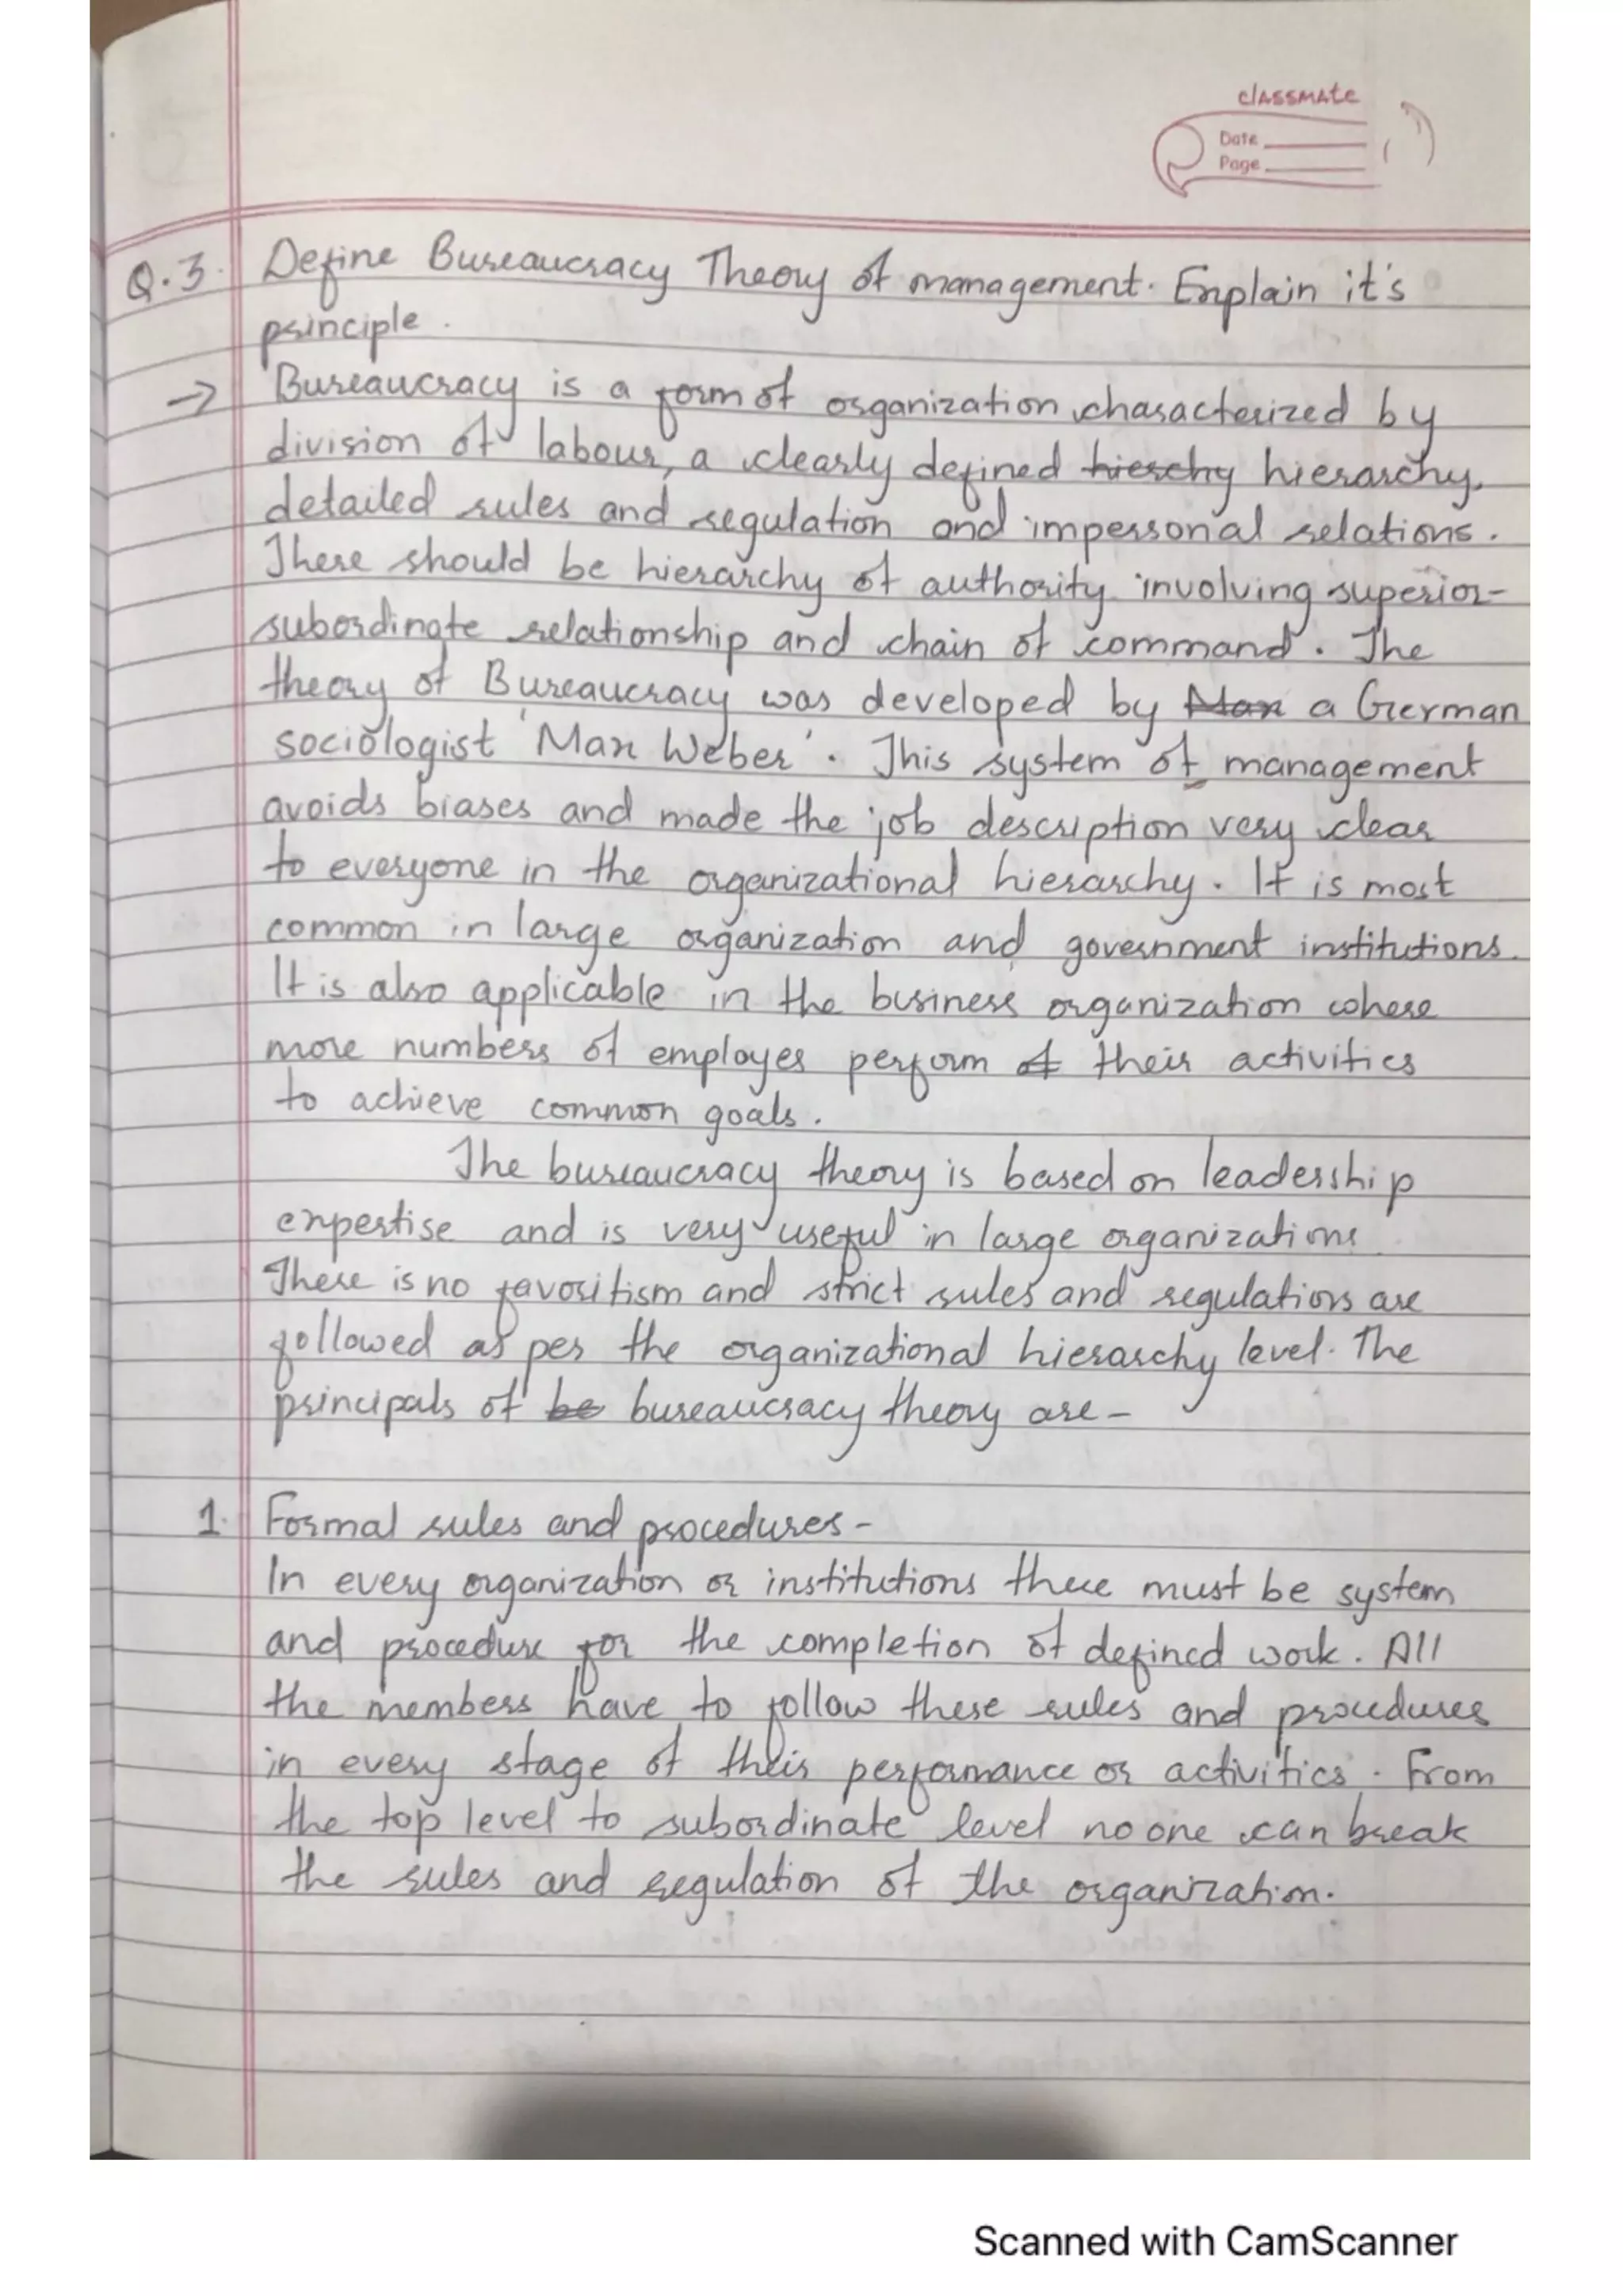 classmate
Date
Page
Q.3. Define Bureaucracy Theory of management. Explain it's
principle.
→ Bureaucracy is a form of organization characterized by
division of labour, a clearly defined hierchy hierarchy,
detailed rules and regulation and impersonal relations.
There should be hierarchy of authority involving superior-
subordinate relationship and chain of command. The
theory of Bureaucracy was developed by Max a German
sociologist 'Max Weber'. This system of management
avoids biases and made the job description very clear
to everyone in the organizational hierarchy. It is most
common in large organization and government institutions.
It is also applicable in the business organization where
more numbers of employes perform of their activities
to achieve common goals.
The bureaucracy theory is based on leadership
expertise and is very useful in large organizations
There is no favoritism and strict rules and regulations are
followed as per the organizational hierarchy level. The
principals of be bureaucracy theory are -
1. Formal rules and procedures -
In every organization or institutions there must be system
and procedure for the completion of defined work. All
the members have to follow these rules and procedures
in every stage of their performance or activities. From
the top level to subordinate level no one can break
the rules and regulation of the organization.
Scanned with CamScanner